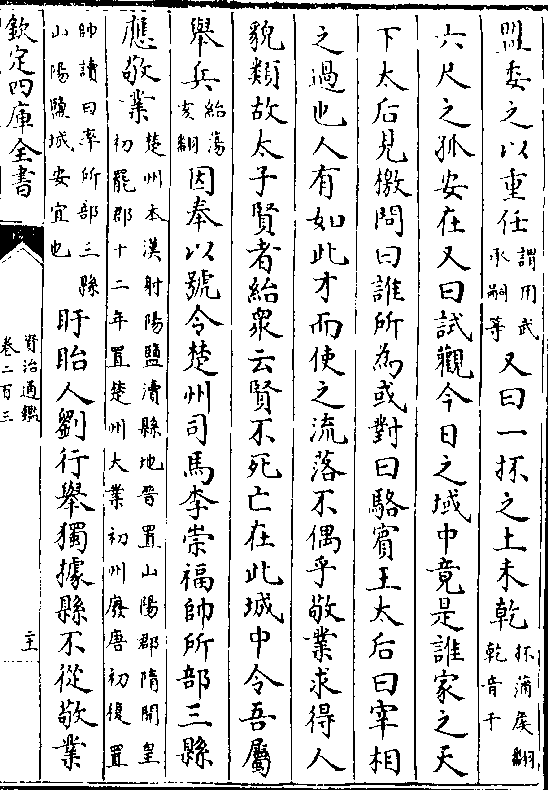 盟委之以重任謂用武承嗣等又曰一抔之土未乾抔蒲侯翻乾音干
六尺之孤安在又曰試觀今日之域中竟是誰家之天
下太后見檄問曰誰所為或對曰駱賓王太后曰宰相
之過也人有如此才而使之流落不偶乎敬業求得人
貌類故太子賢者紿衆云賢不死亡在此城中令吾屬
舉兵紿蕩亥翻因奉以號令楚州司馬李崇福帥所部三縣
應敬業楚州本漢射陽鹽瀆縣地晉置山陽郡隋開皇初罷郡十二年置楚州大業初州廢唐初復置
帥讀曰率所部三縣山陽鹽城安宜也盱眙人劉行舉獨據縣不從敬業
欽定四庫全書
資治通鑑
卷二百三